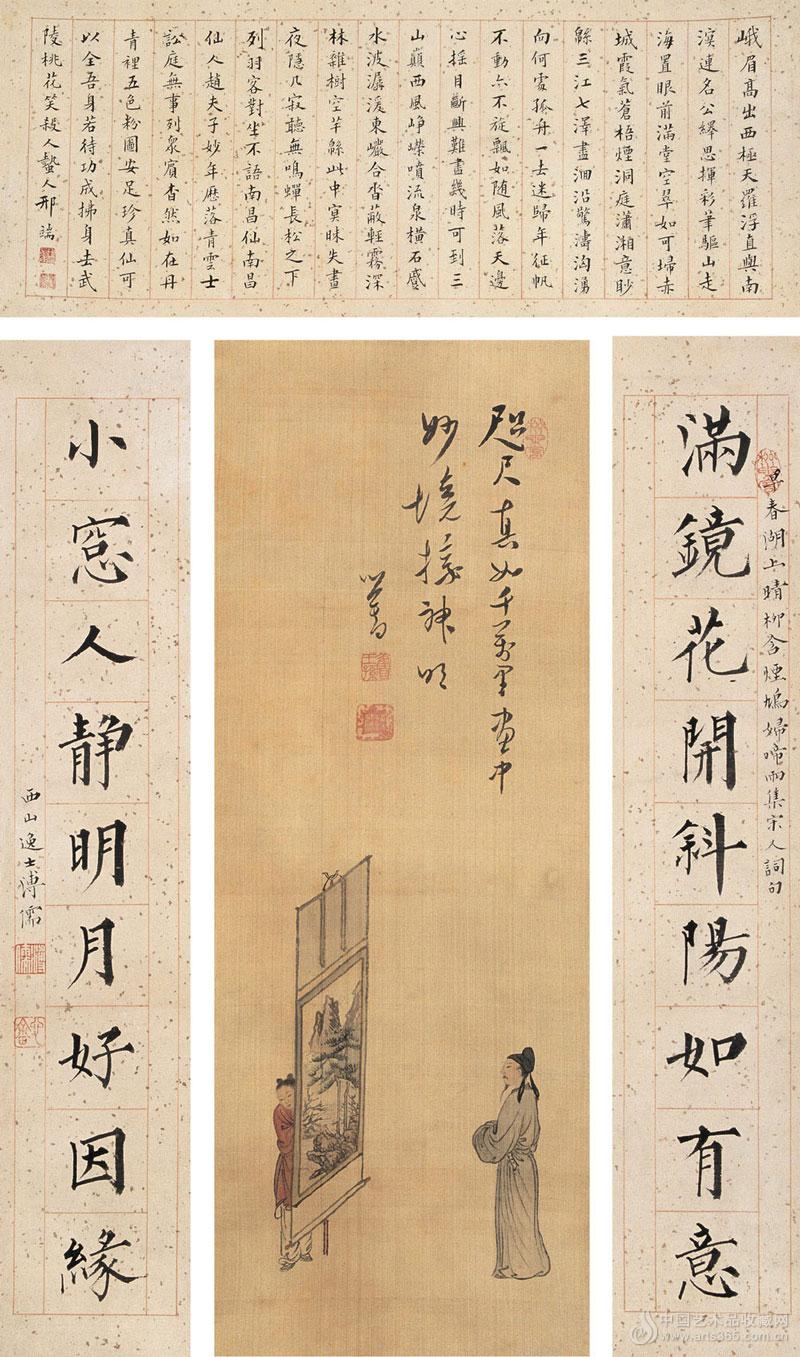 峨眉高出西極天羅浮直與南
溟連名公繹思揮彩筆驅山走
海置眼前滿堂空翠如可埽赤
城霞氣蒼梧煙洞庭瀟湘意眇
緜三江七澤盡洄沿驚濤洶湧
向何處孤舟一去迷歸年征帆
不動亦不旋飄如随風落天邊
心摇目斷興難盡幾時可到三
山巔西風崢嶸噴流泉橫石蹙
水波潺湲東巖合沓蔽輕霧深
林雜樹空芊緜此中冥昧失晝
夜隱几寂聽無鳴蟬長松之下
列羽客對坐不語南昌仙南昌
仙人趙夫子妙年歷落青雲士
訟庭無事列衆賓杳然如在丹
青裡五色粉圖安足珍真仙可
以全吾身若待功成拂身去武
陵桃花笑殺人蟄人邢端
滿鏡花開斜陽如有意
早春湖上晴柳含煙鳩婦啼雨集宋人詞句
咫尺真如千萬里畫中
妙境擬神明
心畬
小窓人静明月好因緣
西山逸士溥儒
中国艺术品收藏网
www.arts365.com.cn